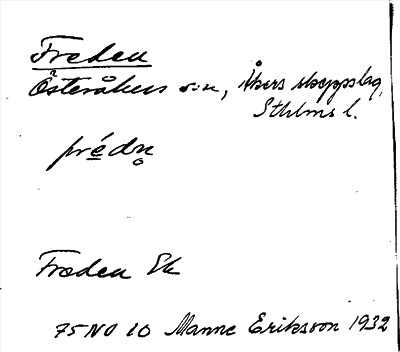 Freden
Österåkers s:n, Åkers skeppslag,
Sthlms l.
fré̲dn̥
Freden Ek
75 NO 10 Manne Eriksson 1932